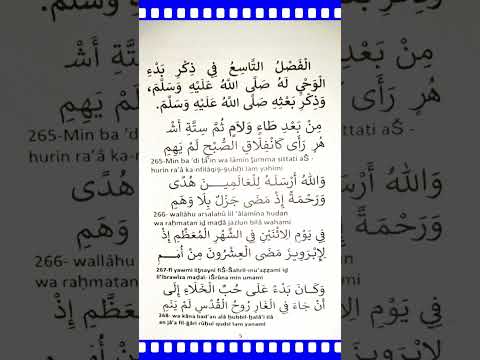 الْفَصْلُ التَّاسِعُ فِي ذِكْرِ بَدْءِ
الْوَحْيِ لَهُ صَلَّى اللهُ عَلَيْهِ وَسَلَّمَ،
وَذِكْرِ بَعْثِهِ صَلَّى اللهُ عَلَيْهِ وَسَلَّمَ.
مِنْ بَعْدِ طَاءٍ وَلَامٍ ثُمَّ سِتَّةِ أَشْ
هُرٍ رَأَى كَانْفِلَاقِ الصُّبْحِ لَمْ يَهِمِ
265-Min ba 'di ţā'in wa lāmin ŧumma sittati aŠ -
hurin ra'â ka-nfilāqiş-şubḥi lam yahimi
وَاللهُ أَرْسَلَهُ لِلْعَالَمِينَ هُدًى
وَرَحْمَةً إِذْ مَضَى جَزْلٌ بِلَا وَهَمِ
266- wallāhu arsalahū lil 'ālamīna hudan
wa raḥmatan iḏ maḍâ jazlun bilā wahami
فِي يَوْمِ الِاثْنَيْنِ فِي الشَّهْرِ الْمُعَظَّمِ إِذْ
لِإِبْرَوِيزَ مَضَى الْعِشْرُونَ مِنْ أُمَمِ
267-fī yawmi iŧnayni fiŠ-Šahril-mu'aẓẓami iḏ
li'ibrawīza maḍal-'iŠrūna min umami
وَكَانَ بَدْءٌ عَلَى حُبِّ الْخَلَاءِ إِلَى
أَنْ جَاءَ فِي الْغَارِ رُوحُ الْقُدْسِ لَمْ يَنَمِ
268- wa kāna bad'an alā ḥubbil-ḫalā'i ilâ
an jā'a fil-ġāri rūḥul qudsi lam yanami
5